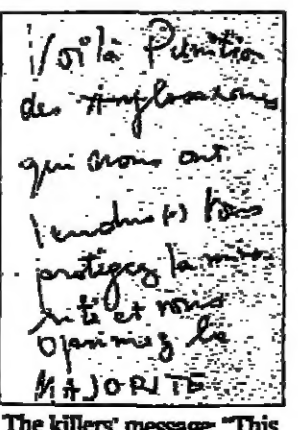 Voilà Punition
des Anglo
qui nous ont
vendu(s)
protégez la mino
rité et vous
Oprimez la
MAJORITE
The killers' message: "This